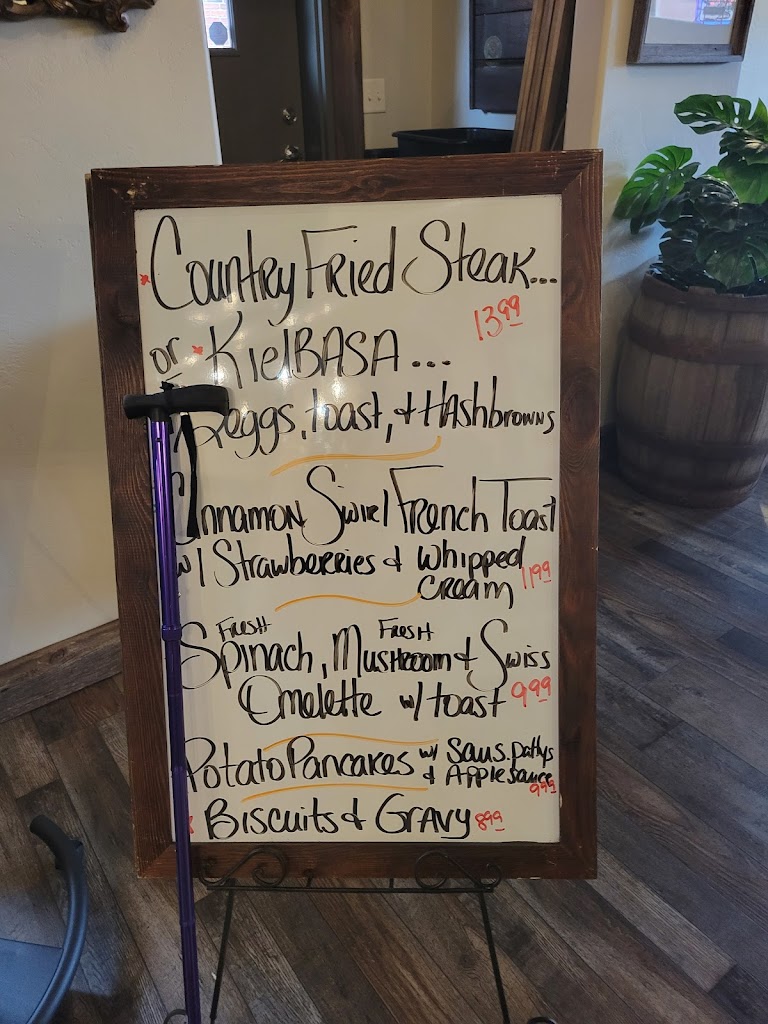 Country Fried Steak...
13.99
or KielBASA...
eggs, toast, & HAshbrowns
Cinnamon Swirl French Toast
w/ Strawberries & whipped
cream 11.99
FResH FResH
Spinach, Mushroom & Swiss
Omelette w/ toast 9.99
Potato Pancakes w/ Saus. pattys
& Applesauce
9.99
Biscuits & Gravy 8.99